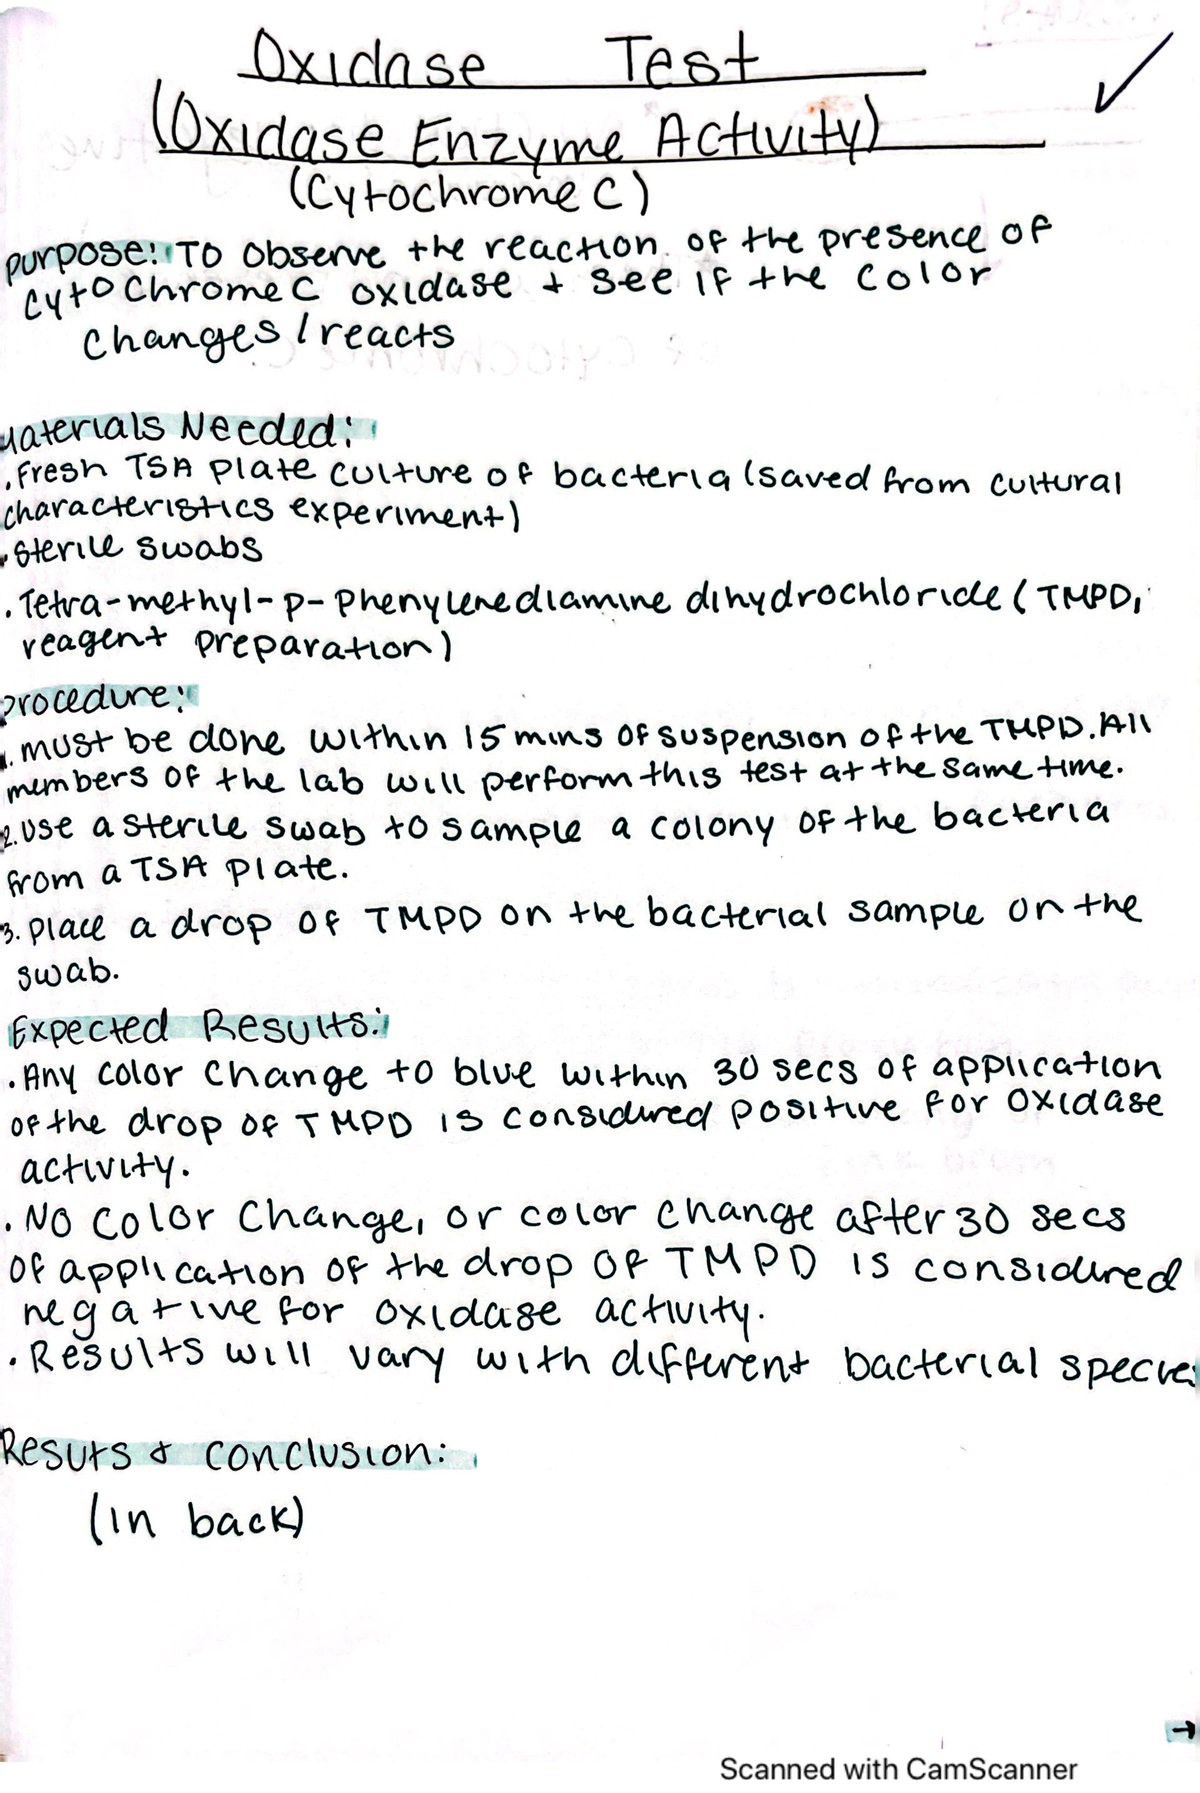 Oxidase Test
(Oxidase Enzyme Activity)
(Cytochrome C)
purpose: To observe the reaction of the presence of
cytochrome C oxidase + see if the color
changes/reacts
Materials Needed:
. Fresh TSA plate culture of bacteria (saved from cultural
characteristics experiment)
. sterile swabs
. Tetra-methyl-p-phenylenediamine dihydrochloride (TMPD,
reagent preparation)
procedure:
1. must be done within 15 mins of suspension of the TMPD. All
members of the lab will perform this test at the same time.
2. use a sterile swab to sample a colony of the bacteria
from a TSA plate.
3. place a drop of TMPD on the bacterial sample on the
swab.
Expected Results:
. Any color change to blue within 30 secs of application
of the drop of TMPD is considered positive for oxidase
activity.
. No color change, or color change after 30 secs
of application of the drop of TMPD is considered
negative for oxidase activity.
. Results will vary with different bacterial species
Resuts & conclusion:
(in back)
→
Scanned with CamScanner